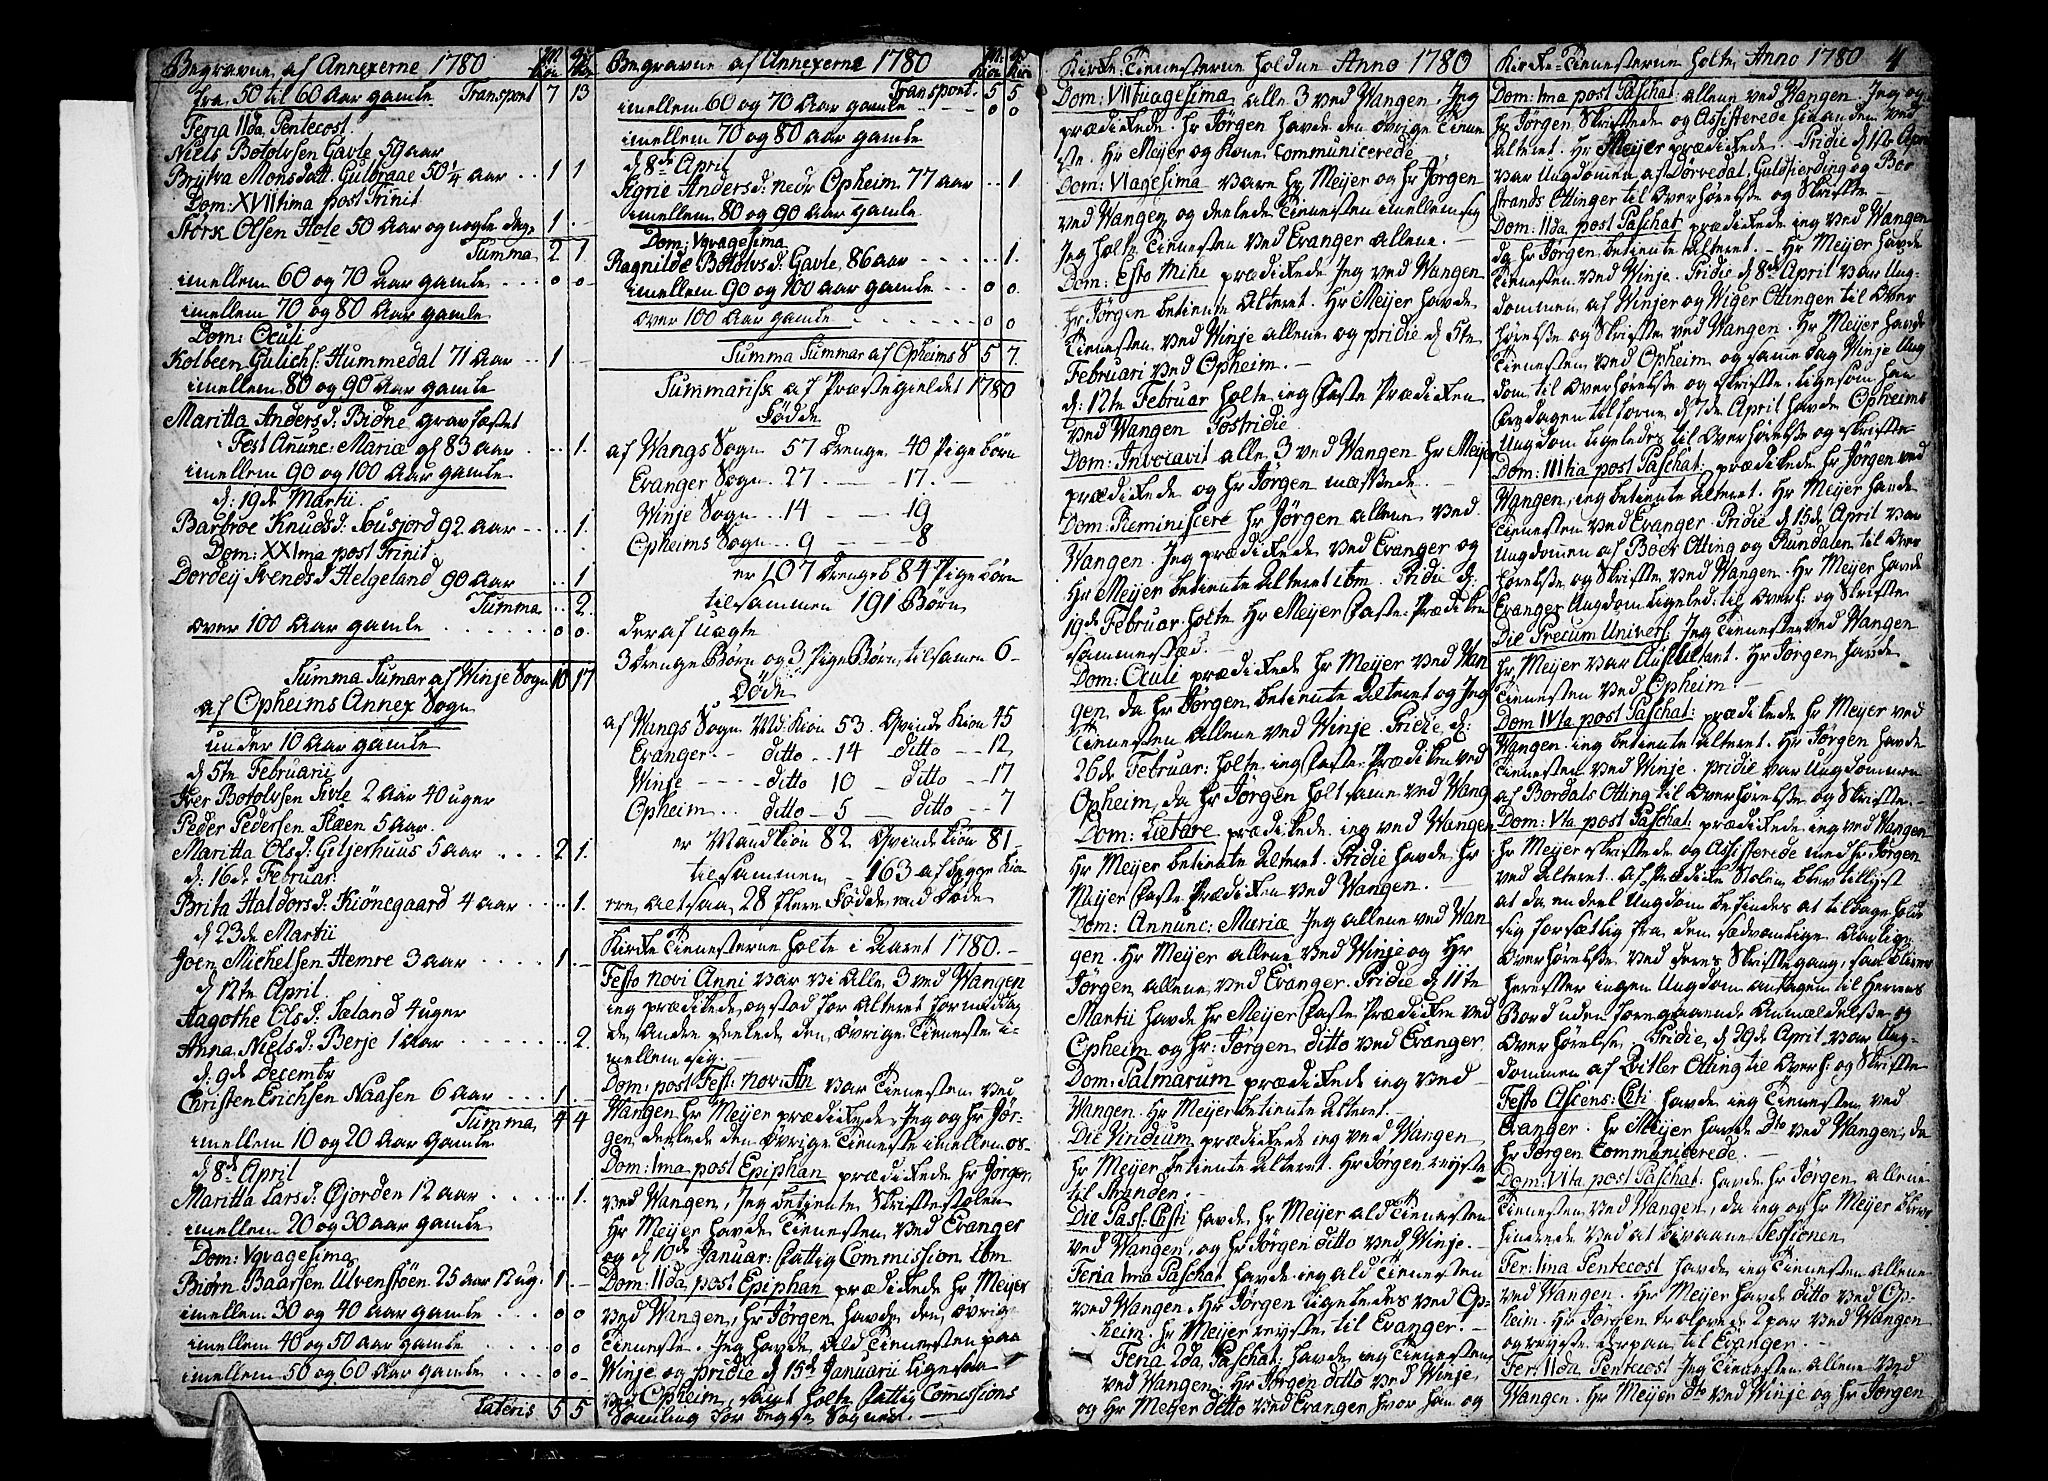 Begravne af Annexerne 1780
fra 50 til 60 Aar gamle Transport 7 13
Feria IIda Pentecost.
Niels Botolvsen Gavle 59 aar
Brytva Monsdatt. Gulbraae 50 1/4 aar .. 1 1
Dom: XVIItima post Trinit
Størk Olsen Hole 50 Aar og nogle dage 1 .-
Summa 2 1
imellem 60 og 70 Aar gamle ... 0 0
imellem 70 og 80 Aar gamle
Dom: Oculi
Kolbeen Gulichs: Hummedal 71 Aar .. 1 .-
imellem 80 og 90 Aar gamle
Maritta Anders d: Bidne gravfæstet
Fest Anunc: Mariæ af 83 aar . ... 1.
imellem 90 og 100 Aar gamle
d: 19de Martii
Barbroe Knuds d: Sousjord 92 aar .. ... 1.
Dom: XXIma post Trinit
Dordeij Svends d Helgeland 90 Aar .. 1
Summa .. 2.
over 100 Aar gamle ...... 0 0.
Summa Sumar af Winje Sogn 10 17
af Opheims Annex Sogn
under 10 Aar gamle
d 5te Februarii
Iver Botolvsen Sivle 2 Aar 40 uger
Peder Pedersen Skaen 5 aar.
Maritta Ols d: Gitjerhuus 5 aar ... 2 1.
d: 16de Februar:
Brita Haldors d: Kiønegaard 4 aar ..... 1.
d 23de Martii
Joen Michelsen Hemre 3 aar ..... 1 .-
d 12te April
Aagothe Ols d: Sæland 4 uger
Anna Niels d: Berje 1 Aar ....... 2.
d: 9de Decembr
Christen Erichsen Naasen 6 aar ... 1 .
Summa 4 4
imellem 10 og 20 Aar gamle
d 8de April
Maritta Lars d: Øjorden 12 aar ..... 1.
imellem 20 og 30 aar gamle
Dom: Vqvagesima
Biørn Baarsen Ulvenssøen 25 aar 12 ug. 1 .-
imellem 30 og 40 aar gamle ... 0 0
imellem 40 og 50 aar gamle ..... 0 0
imellem 50 og 60 Aar gamle .... 0 0
Lateris 5 5
Begravne af Annexerne 1780
Transport. 5 5
imellem 60 og 70 Aar gamle - - 0 0
imellem 70 og 80 Aar gamle
d 8de April
Sigrie Anders d: nedr Opheim 77 aar ... 1
imellem 80 og 90 Aar gamle
Dom: Vqvagesima
Ragnilde Botolvs d: Gavle, 86 aar - - - ... 1.
imellem 90 og 100 aar gamle .. 0 0.
over 100 Aar gamle . - - - - - 0 0
Summa Summar af Opheims S 5 7.
Summarisk af Præstegieldet 1780
Fødde
af Wangs Sogn 57 Drenge 40 Pigebørn
Evanger Sogn .. 27 - - - 17. -
Winje Sogn .. 14 - - - 19
Opheims Sogn .. 9 - - - 8
er 107 Drengeb 84 Pigebørn
tilsammen 191 Børn
deraf uægte
3 Drenge Børn og 3 Pige Børn, tilsamen 6 -
Døde
af Wangs Sogn Md: Kiøn 53 Qvinde Kiøn 45
Evanger - ditto .. 14 ditto .. 12
Winje - - - ditto 10 - ditto .. 17
Opheim .. ditto - 5 - ditto .. 7
er Mandkiøn 82 Qvindekiøn 81
tilsammen - 163 af begge Kiøn
ere altsaa 28 flere Fødde end Døde
Kirke Tienesterne holte i Aaret 1780. -
Festo Novi Anni var vi alle 3 ved Wangen
ieg prædikede, og stod for Alteret formiddag
de Andre deelede den øvrige Tieneste i-
mellem sig. -
Dom: post Fest: nov: An var Tienesten ved
Wangen hr Meijer prædikede, Jeg og hr Jør-
gen deelede den øvrige Tieneste imellem os-
Dom: Ima post Epiphan prædikede hr Jørgen
ved Wangen, Jeg betiente Skriftestolen
Hr Meijer havde Tienesten ved Evanger
og d 10de Januar: Fattig Commission ibm
Dom: IIda post Epiphan prædikede hr Meijer
ved Wangen, hr Jørgen havde den øvrige
Tieneste. Jeg havde Ald Tienesten paa
Winje og pridie d 15de Januarii ligesaa
ved Opheim, samt holte Fattig Comissions
Samling for begge Sogner. -
Kirke-Tienesterne holdne Anno 1780
Dom: VIItuagesima alle 3 ved Wangen. Jeg
prædikede. hr Jørgen havde den øvrige Tiene
ste. Hr Meijer og Kone Communicerede.
Dom: VIagesima vare hr Meijer og hr Jørgen
ved Wangen og deelede Tienesten imellem sig
Jeg holte Tienesten ved Evanger allene. -
Dom: Esto Mihi prædikede Jeg ved Wangen
hr Jørgen betiente Alteret. Hr Meijer havde
Tienesten ved Winje allene og pridie d 5te
Februarii ved Opheim. -
d: 12te Februar holte ieg Faste Prædiken
ved Wangen Postridie
Dom: Invocavit alle 3 ved Wangen hr Meijer
prædikede og hr Jørgen mæssede. -
Dom: Reminiscere hr Jørgen allene ved
Wangen. Jeg prædikede ved Evanger og
Hr Meijer betiente Alteret ibm. Pridie d:
19de Februar. holte Hr Meijer Faste-Prædiken
sammestæd. -
Dom: Oculi prædikede hr Meijer ved Wan
gen, da hr Jørgen betiente Alteret og Jeg
Tienesten allene ved Winje. Pridie d:
26de Februar: holte ieg Faste Prædiken ved
Opheim, da hr Jørgen holt samme ved Wang
Dom: Lætare prædikede ieg ved Wangen
Hr Meijer betiente Alteret. Pridie havde hr
Meijer Faste Prædiken ved Wangen. -
Dom: Annunc: Mariæ Jeg allene ved Wan-
gen. Hr Meijer allene ved Winje og Hr
Jørgen allene ved Evanger. Pridie d 11te
Martii havde hr Meijer Faste Prædiken ved
Opheim og hr: Jørgen ditto ved Evanger
Dom: Palmarum prædikede ieg ved
Wangen. Hr Meijer betiente Alteret.
Die Viridium prædikede ieg ved Wangen
hr Meijer betiente Alteret. Hr Jørgen reyste
til Stranden. -
Die Pass: Xsti havde hr Meijer ald Tienesten
ved Wangen, og hr Jørgen ditto ved Winje. -
Feria Ima Paschat havde ieg ald Tienesten
ved Wangen. Hr Jørgen ligeledes ved Op-
heim. hr Meijer reyste til Evanger. -
Feria 2da Paschat: havde ieg Tienesten
ved Wangen. Hr Jørgen ditto ved Winje
og Hr Meijer ditto ved Evanger hvor han og
Kirke-Tienesterne holte Anno 1780 4
Dom: Ima post Paschat: allene ved Wangen. Jeg og
hr Jørgen Skriftede og Assisterede hinanden ved
alteret. Hr Meijer prædikede. Pridie d 1te April
var Ungdomen af Dørvedal, Guldfierding og Bor
strands Ottinger til Overhørelse og Skrifte -
Dom: IIda post Paschat prædikede ieg ved Wangen
da hr Jørgen betiente Alteret. - Hr Meijer havde
Tienesten ved Winje. Pridie d 8de April var Ung-
dommen af Winjer og Wiger Ottingen til Over
hørelse og Skrifte ved Wangen. Hr Meijer havde
Tienesten ved Opheim og same dag Winje Ung
dom til Overhørelse og skrifte, ligesom han
Fredagen tilforne d 7de April havde Opheims
Ungdom ligeledes til Overhørelse og skrifte -
Dom: IIItia post Paschat: prædikede hr Jørgen ved
Wangen, ieg betiente Alteret. Hr Meijer havde
Tienesten ved Evanger. Pridie d 15de April var
Ungdommen af Böer Otting og Rundalen til Over
hørelse og Skrifte ved Wangen. Hr Meijer havde
Evanger Ungdom ligeled: til Overh: og Skrifte
Die Precum Univers: Jeg Tienesten ved Wangen
hr Meijer var Auscultant. Hr Jørgen havde
Tienesten ved Opheim. -
Dom IVta post Paschat: prædikede hr Meijer ved
Wangen. ieg betiente Alteret. Hr Jørgen havde
Tienesten ved Winje. pridie var Ungdommen
af Bordals Otting til Overhørelse og Skrifte. -
Dom: Vta post Paschat: prædikede ieg ved Wangen
hr Meijer skriftede og Assisterede med hr Jørgen
ved Alteret. af Prædike Stolen blev tillyst
at da en deel Ungdom befindes at tilbageholde
sig forsætlig fra den sædvanlige Aarlige
Overhørelse ved deres Skriftegang, saa bliver
herefter ingen Ungdom antagen til Herrens
Bord uden foregaaende Anmældelse og
Overhørelse. Pridie d 29de April var Ung-
dommen af Qvitler Otting til Overh: og Skrifte
Festo Ascens: Xsti havde ieg Tienesten ved
Evanger. hr Meijer havde Dto ved Wangen, da
hr Jørgen Communicerede. -
Dom: VIta post Paschat: havde hr Jørgen allene
Tienesten ved Wangen, da ieg og hr Meijer blev
hindrede ved at bivaane Sessionen
Fer: Ima Pentecost havde ieg Tienesten allene
ved Wangen. Hr Meijer havde ditto ved Op-
heim. Hr Jørgen trolovede 2 par ved Wangen
og reyste derpaa til Evanger. -
Fer: IIda Pentecost Jeg Tienesten allene ved
Wangen. Hr Meijer dto ved Winje og hr Jørgen